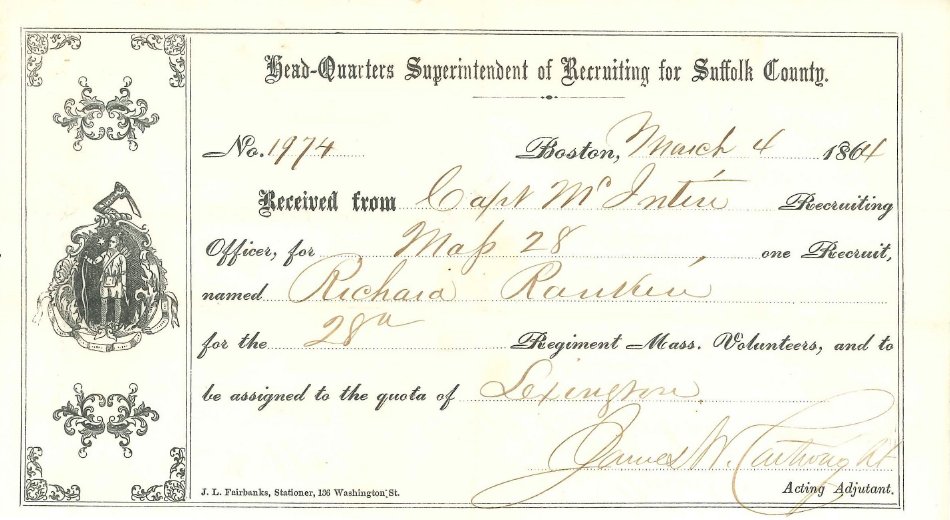 Head-Quarters Superintendent of Recruiting for Suffolk County.
No. 1974 Boston, March 4 1864
Received from Capt McIntire Recruiting
Officer, for Mass 28 one Recruit,
named Richard Rankin
for the 28th Regiment Mass. Volunteers, and to
be assigned to the quota of Lexington.
James W. Cartwright
J. L. Fairbanks, Stationer, 136 Washington St. Acting Adjutant.